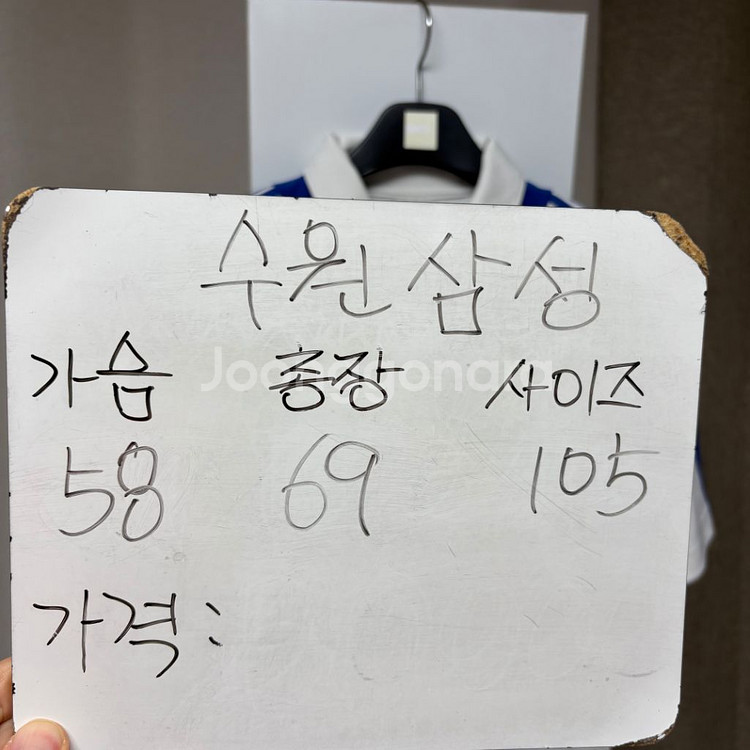 수원 삼성
가슴 총장 사이즈
Joonggonara
58 69 105
가격: